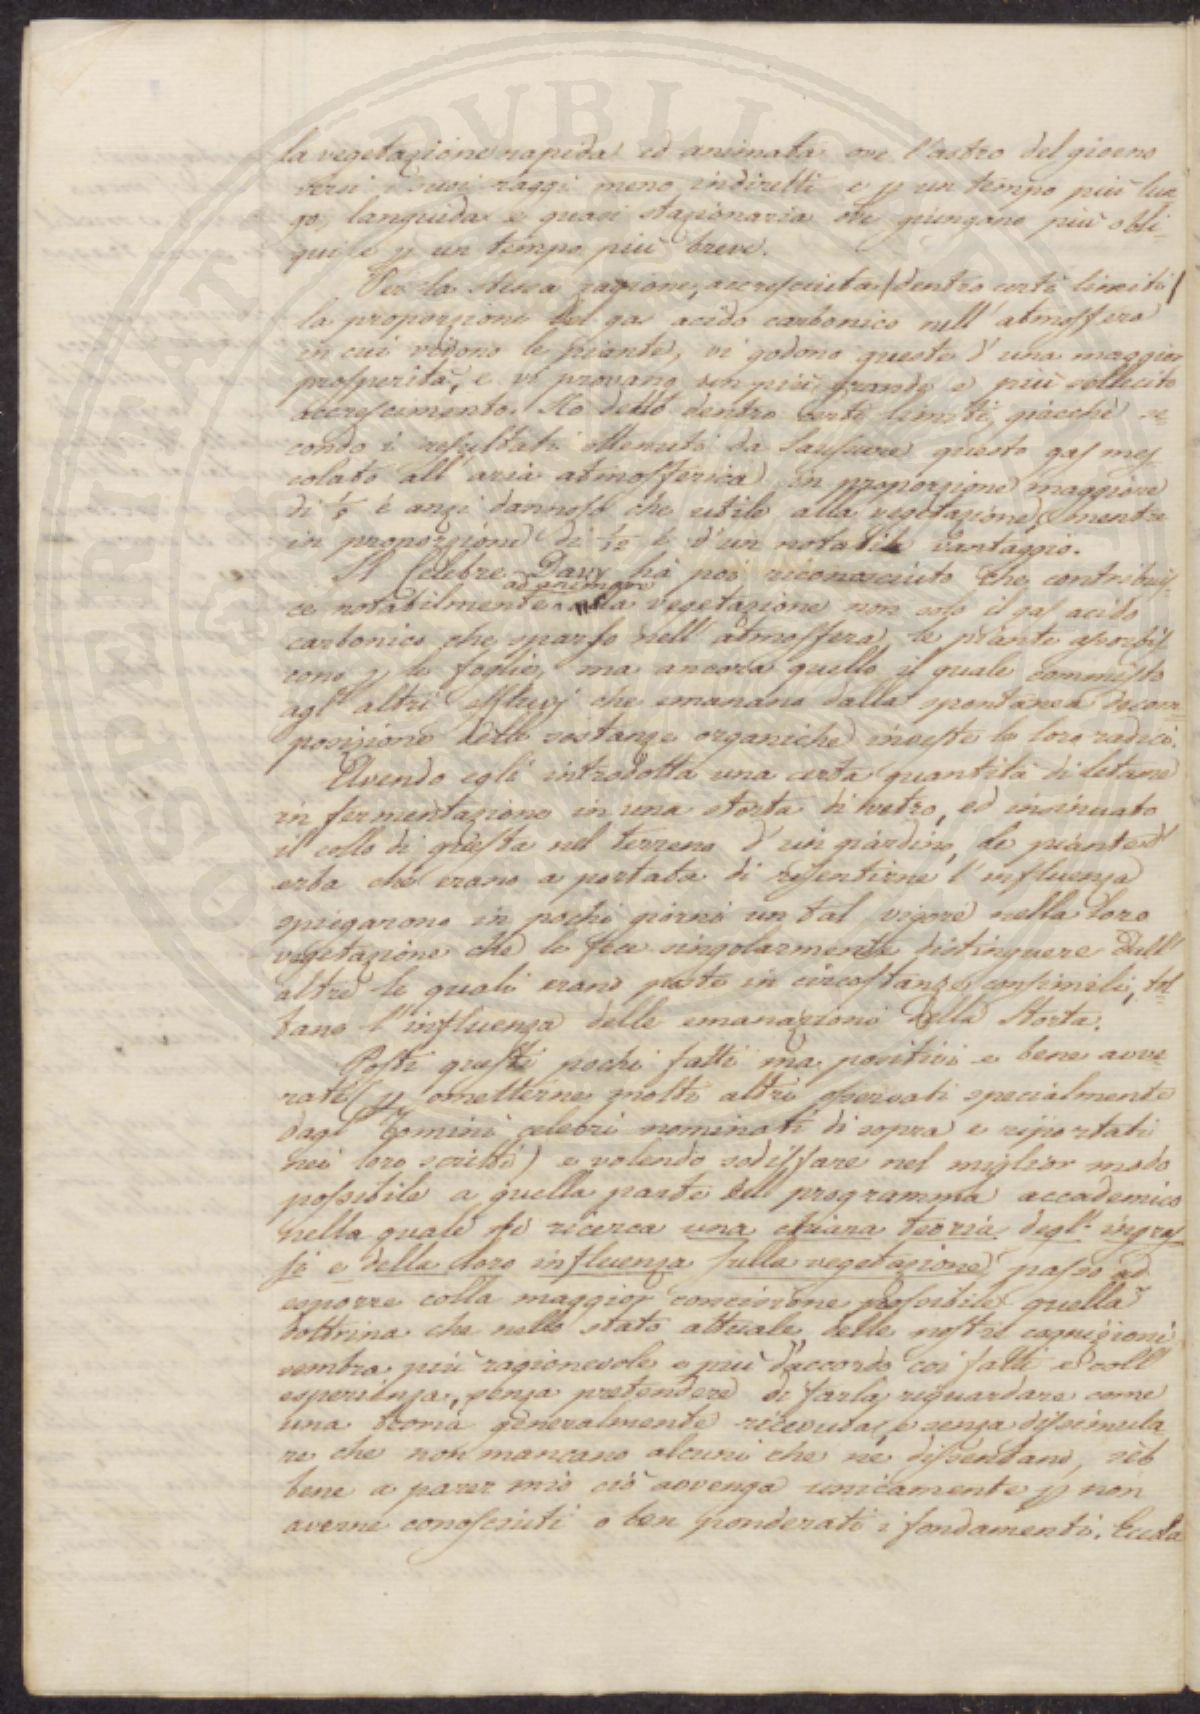 la vegetazione rapida ed animata ove l'astro del giorno
versi i suoi raggi meno indiretti e p un tempo più lun
go, languida e quasi stazionaria ove giungano più obli-
qui e p un tempo più breve.
Per la stessa ragione, accresciuta (dentro certi limiti)
la proporzione del gas acido carbonico nell'atmosfera
in cui vivono le piante, vi godono queste d'una maggior
prosperità, e vi provano un più grande e più sollecito
accrescimento. Ho detto dentro certi limiti, giacchè se-
condo i resultati ottenuti da Saussure questo gas mes
colato all'aria atmosferica in proporzione maggiore
di 1/8 è anzi dannoso che utile alla vegetazione, mentre
in proporzione di 1/12 è d'un notabile vantaggio.
Il Celebre Davy ha poi riconosciuto che contribuis-
ce notabilmente ad animare la vegetazione non solo il gas acido
carbonico che sparso nell'atmosfera le piante assorbis
cono p le foglie, ma ancora quello il quale commisto
agl' altri effluvj che emanano dalla spontanea decom-
posizione delle sostanze organiche investe le loro radici.
Avendo egli introdotta una certa quantità di letame
in fermentazione in una storta di vetro, ed insinuato
il collo di questa nel terreno d'un giardino, le piante d'
erba che erano a portata di risentirne l'influenza
spiegarono in pochi giorni un tal vigore nella loro
vegetazione che le fece singolarmente distinguere dall'
altre le quali erano poste in circostanze consimili, tol-
tane l'influenza delle emanazioni della Storta.
Posti questi pochi fatti ma positivi e bene avve-
rati (p ometterne molti altri osservati specialmente
dagl' Uomini celebri nominati di sopra e riportati
nei loro scritti) e volendo sodisfare nel miglior modo
possibile a quella parte del programma accademico
nella quale si ricerca una chiara teoria degl' ingras
si e della loro influenza sulla vegetazione, passo ad
esporre colla maggior concisione possibile quella
dottrina che nello stato attuale delle nostre cognizioni
sembra più ragionevole e più d'accordo coi fatti e coll'
esperienza, senza pretendere di farla riguardare come
una teoria generalmente ricevuta, e senza dissimula-
re che non mancano alcuni che ne dissentano, seb
bene a parer mio ciò avvenga unicamente p non
averne conosciuti o ben ponderati i fondamenti. Tutta